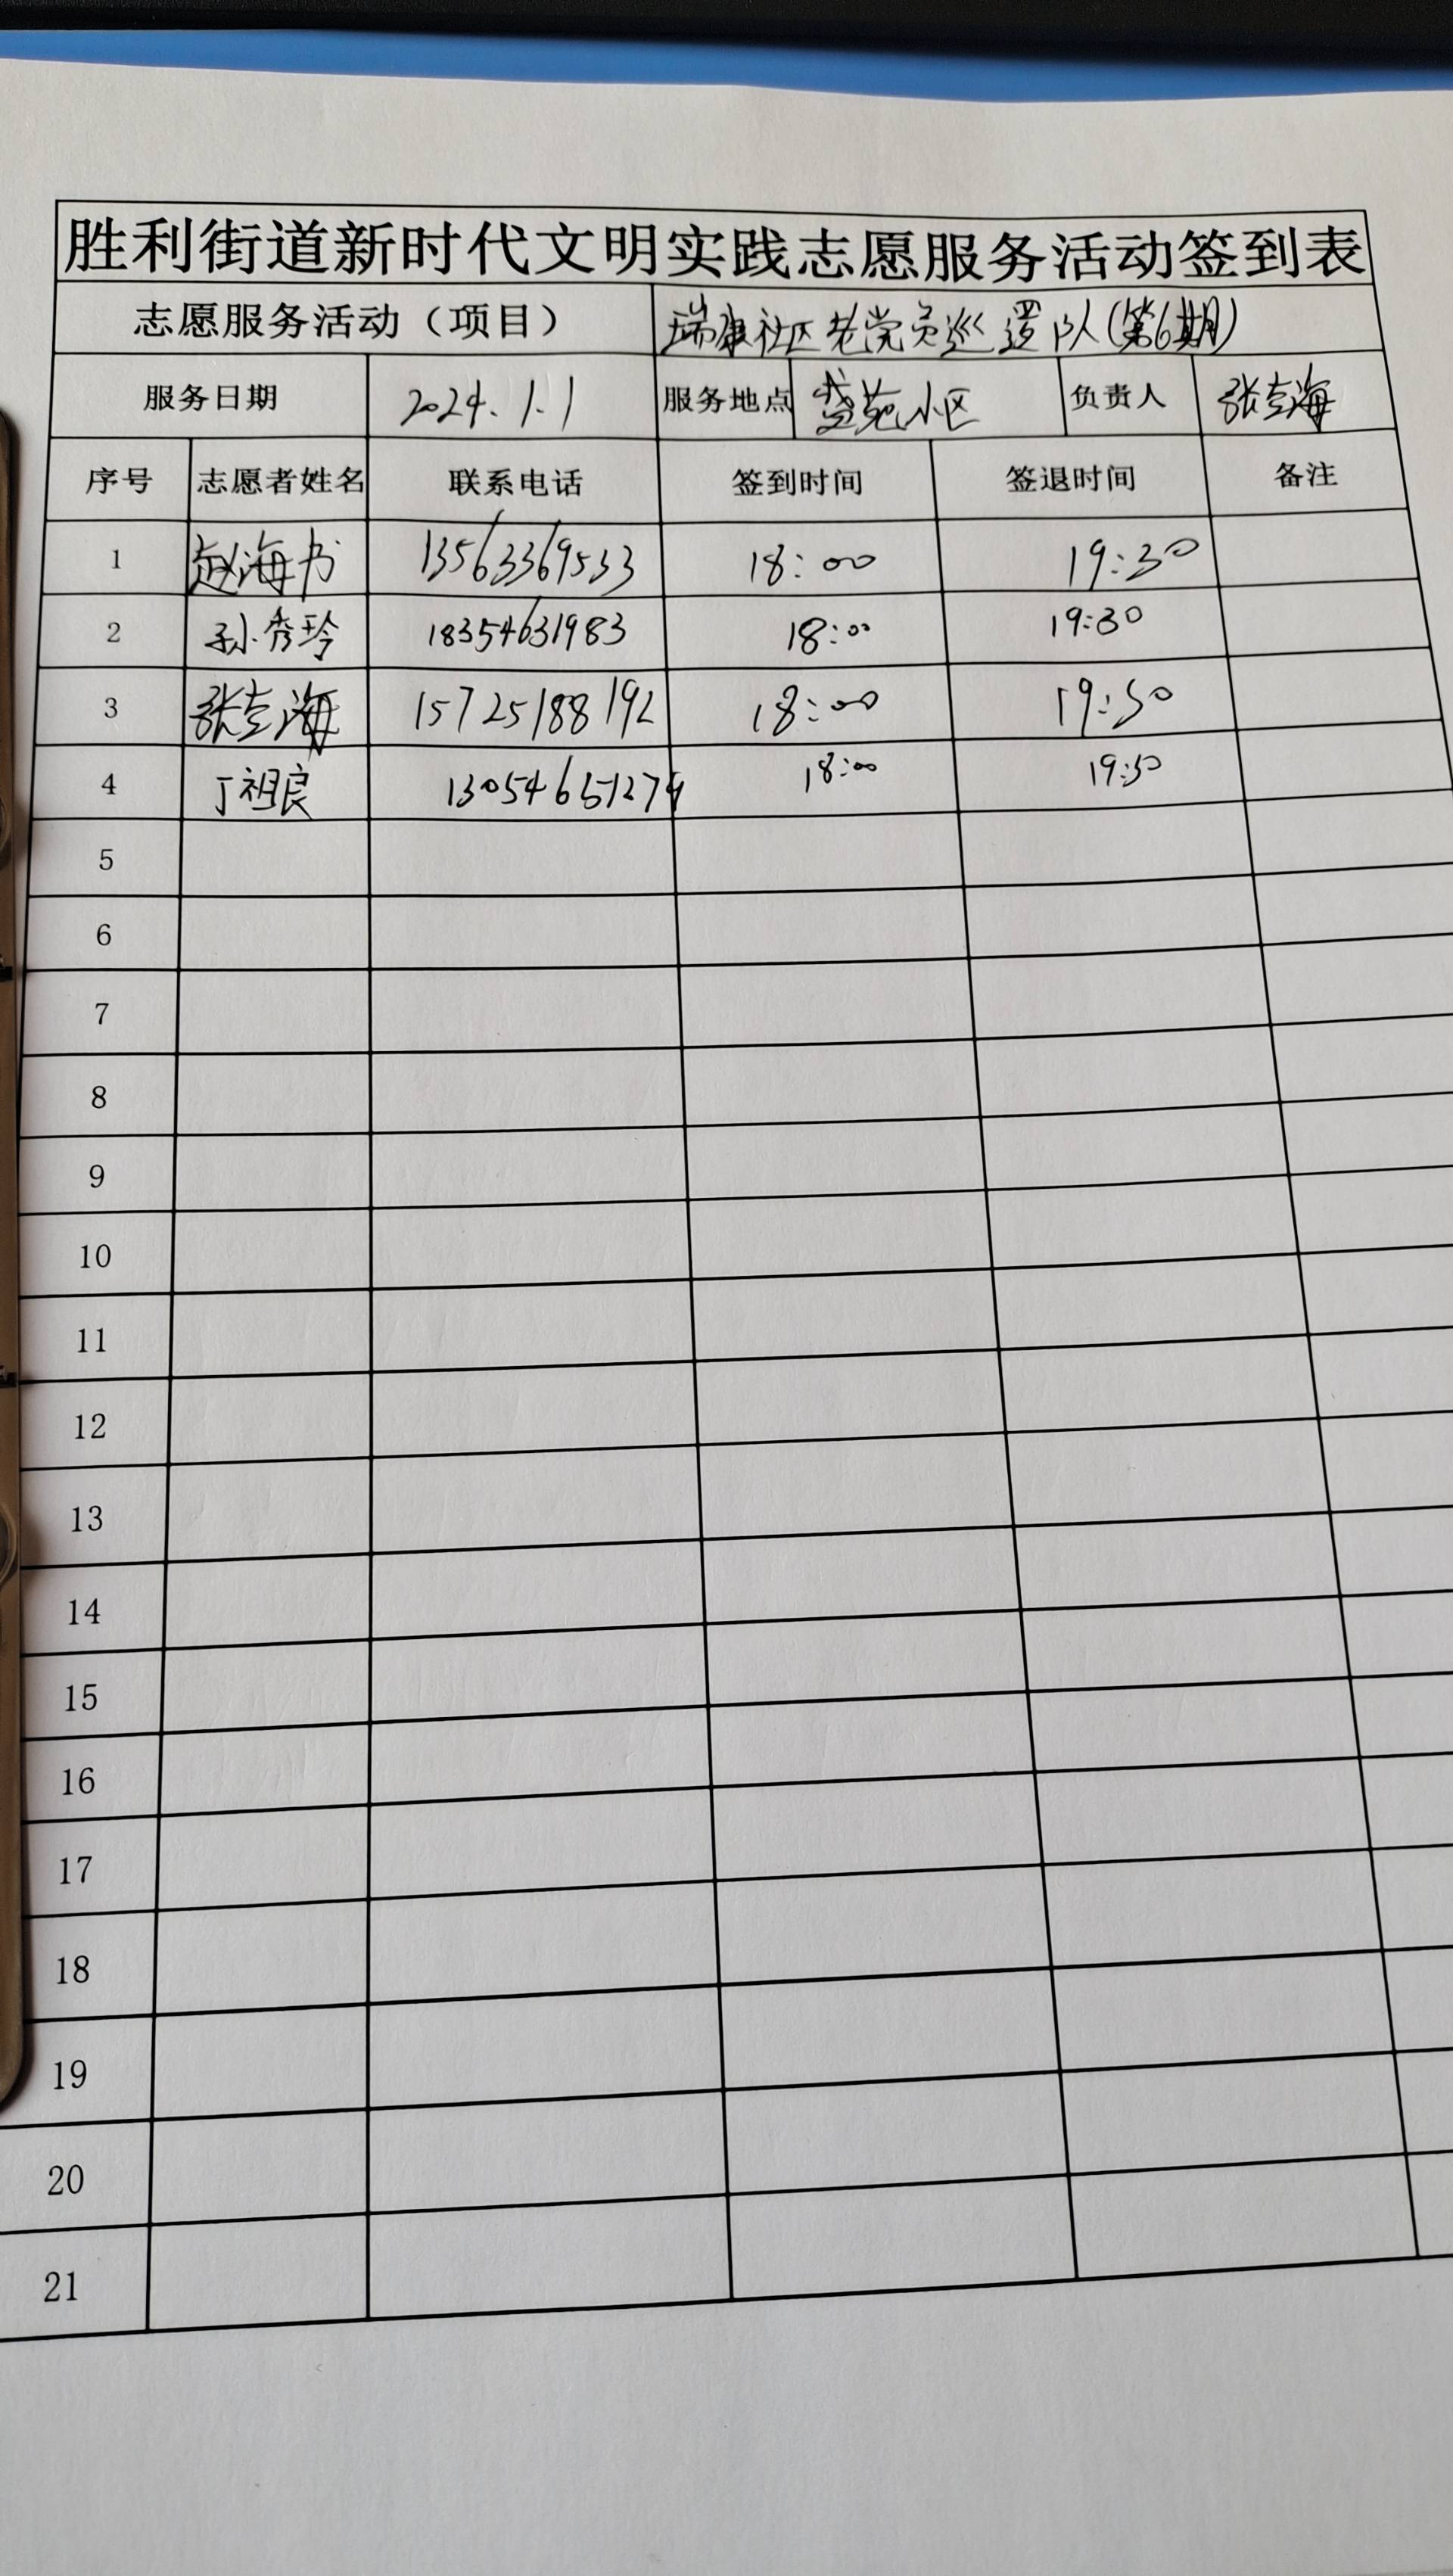 胜利街道新时代文明实践志愿服务活动签到表
志愿服务活动（项目） 瑞康社区老党员巡逻队(第6期)
服务日期 2024.1.1 服务地点 盛苑小区 负责人 张志海
序号 志愿者姓名 联系电话 签到时间 签退时间 备注
1 赵海书 13563369533 18:00 19:30
2 孙秀玲 18354631983 18:00 19:30
3 张志海 15725188192 18:00 19:30
4 丁祖良 13054651274 18:00 19:30
5
6
7
8
9
10
11
12
13
14
15
16
17
18
19
20
21